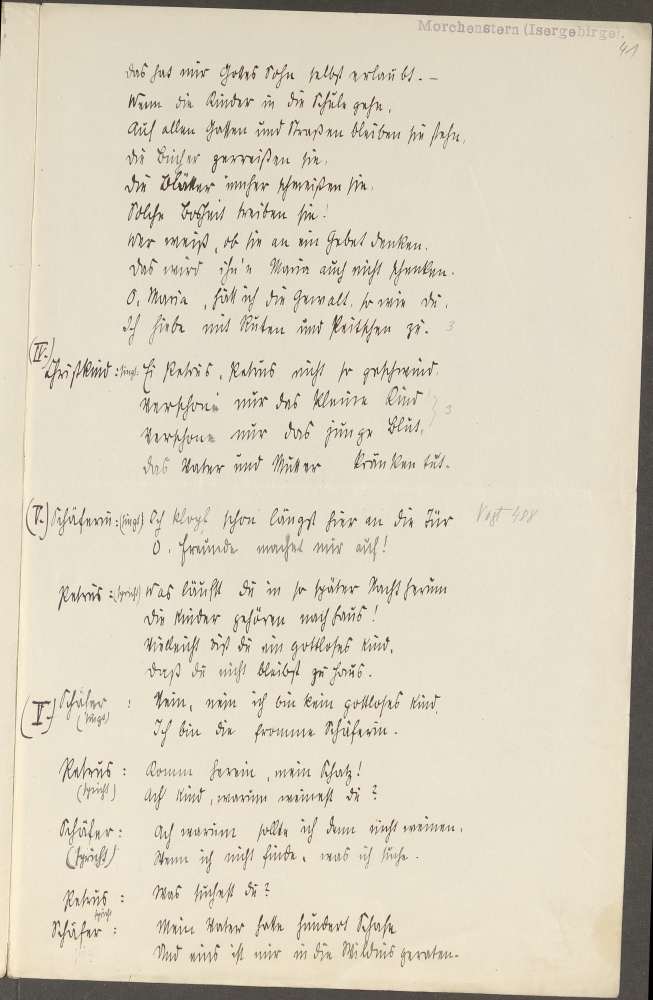 Morchenstern (Isergebirge).
41
das hat mir Gottes Sohn selbst erlaubt. –
Wenn die Kinder in die Schule gehn,
Auf allen Gassen und Straßen bleiben sie stehn,
die Bücher zerreißen sie,
die Blätter umher schmeißen sie.
Solche Bosheit treiben sie!
Wer weiß, ob sie an ein Gebet denken.
das wird ihn'n Maria auch nicht schenken.
O, Maria, hätt ich die Gewalt, so wie du,
Ich hiebe mit Ruten und Peitschen zu. 3
(IV.)
Christkind: singt: Ei Petrus, Petrus nicht so geschwind,
Verschone nur das kleine Kind
Verschone nur das junge Blut, } 3
das Vater und Mutter kränken tut.
(V.) Schäferin: (singt) Ich klopf schon längst hier an die Tür Vogt 488
O, Freunde machet mir auf!
Petrus: (spricht) Was läufst du in so später Nacht herum
Die Kinder gehören nach Haus!
Vielleicht bist du ein gottloses Kind,
Daß du nicht bleibst zu Haus.
(V.) Schäfer (singt) : Nein, nein ich bin kein gottloses Kind,
Ich bin die fromme Schäferin.
Petrus: Komm herein, mein Schatz!
(spricht) Ach Kind, warum weinest du?
Schäfer: Ach warum sollte ich denn nicht weinen,
(spricht) Wenn ich nicht finde, was ich suche.
Petrus: Was suchest du?
spricht
Schäfer: Mein Vater hatte hundert Schafe
Und eins ist mir in die Wildnis geraten.